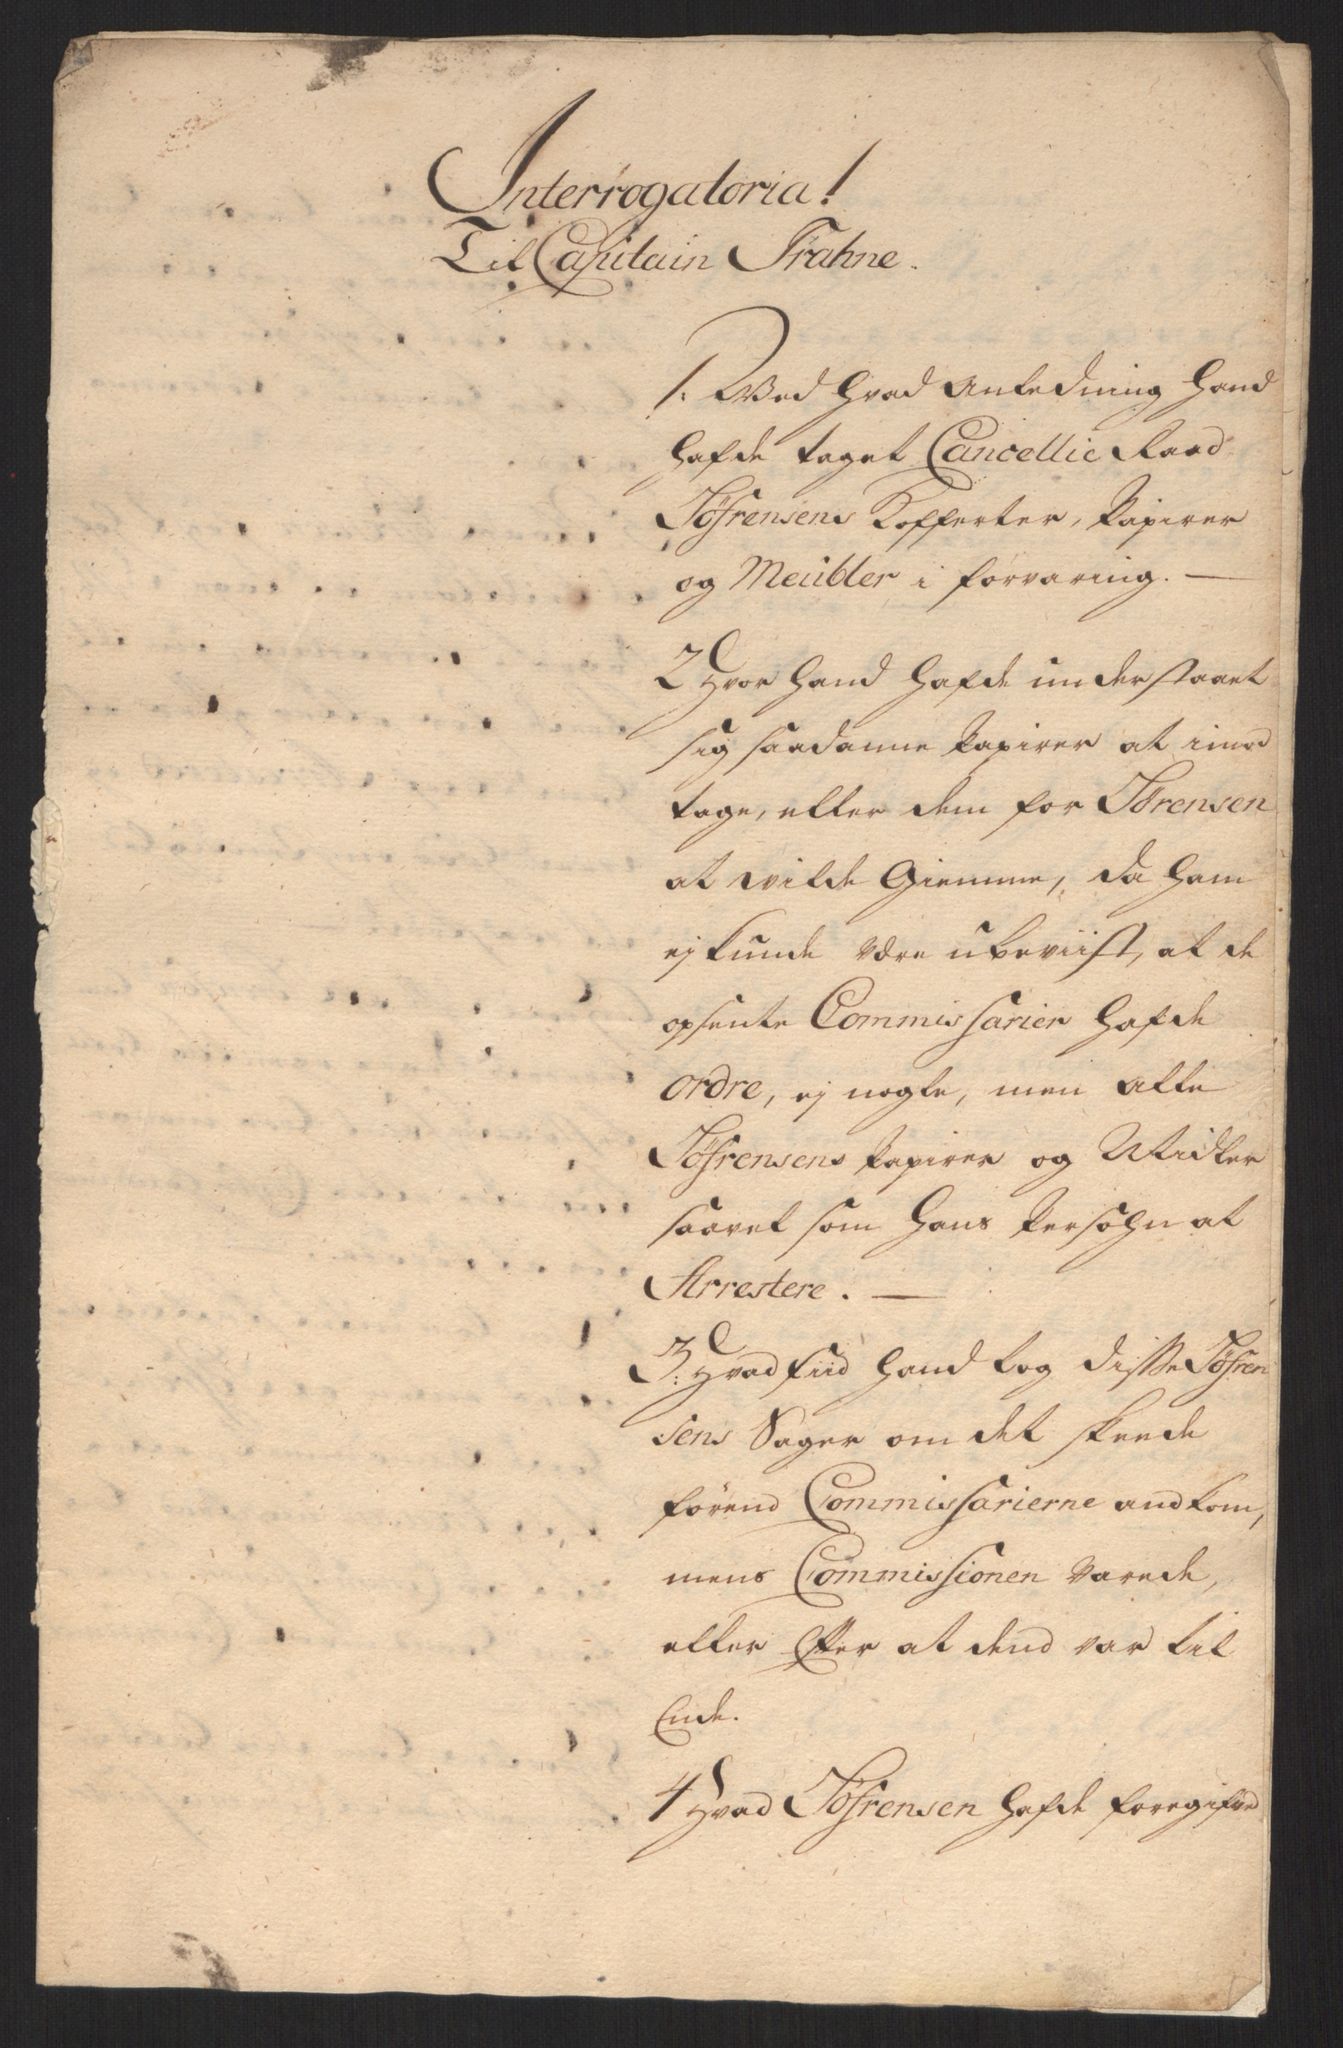 Interrogatoria!
Til Capitain Trahne.
1. Ved hvad Anledning hand
hafde taget Cancellie Raad
Jøsrensens Kofferter, Papirer
og Meubler i forvaring. —
2 Hvor hand hafde understaaet
sig saadanne Papirer at imod
tage, eller dem for Jørensen
at vilde Giemme, da ham
ej kunde være ubeviist, at de
opsente Commissarier hafde
ordre, ej nogle, men alle
Jøsrensens Papirer og Midler
saavel som hans Persohn at
Arrestere. —
3. Hvad tiid hand tog disse Jøsren
sens Sager om det skeede
førend Commissarierne andkom,
mens Commissionen varede,
eller Efter at dend var til
Ende.
4 Hvad Jøsrensen hafde foregifved